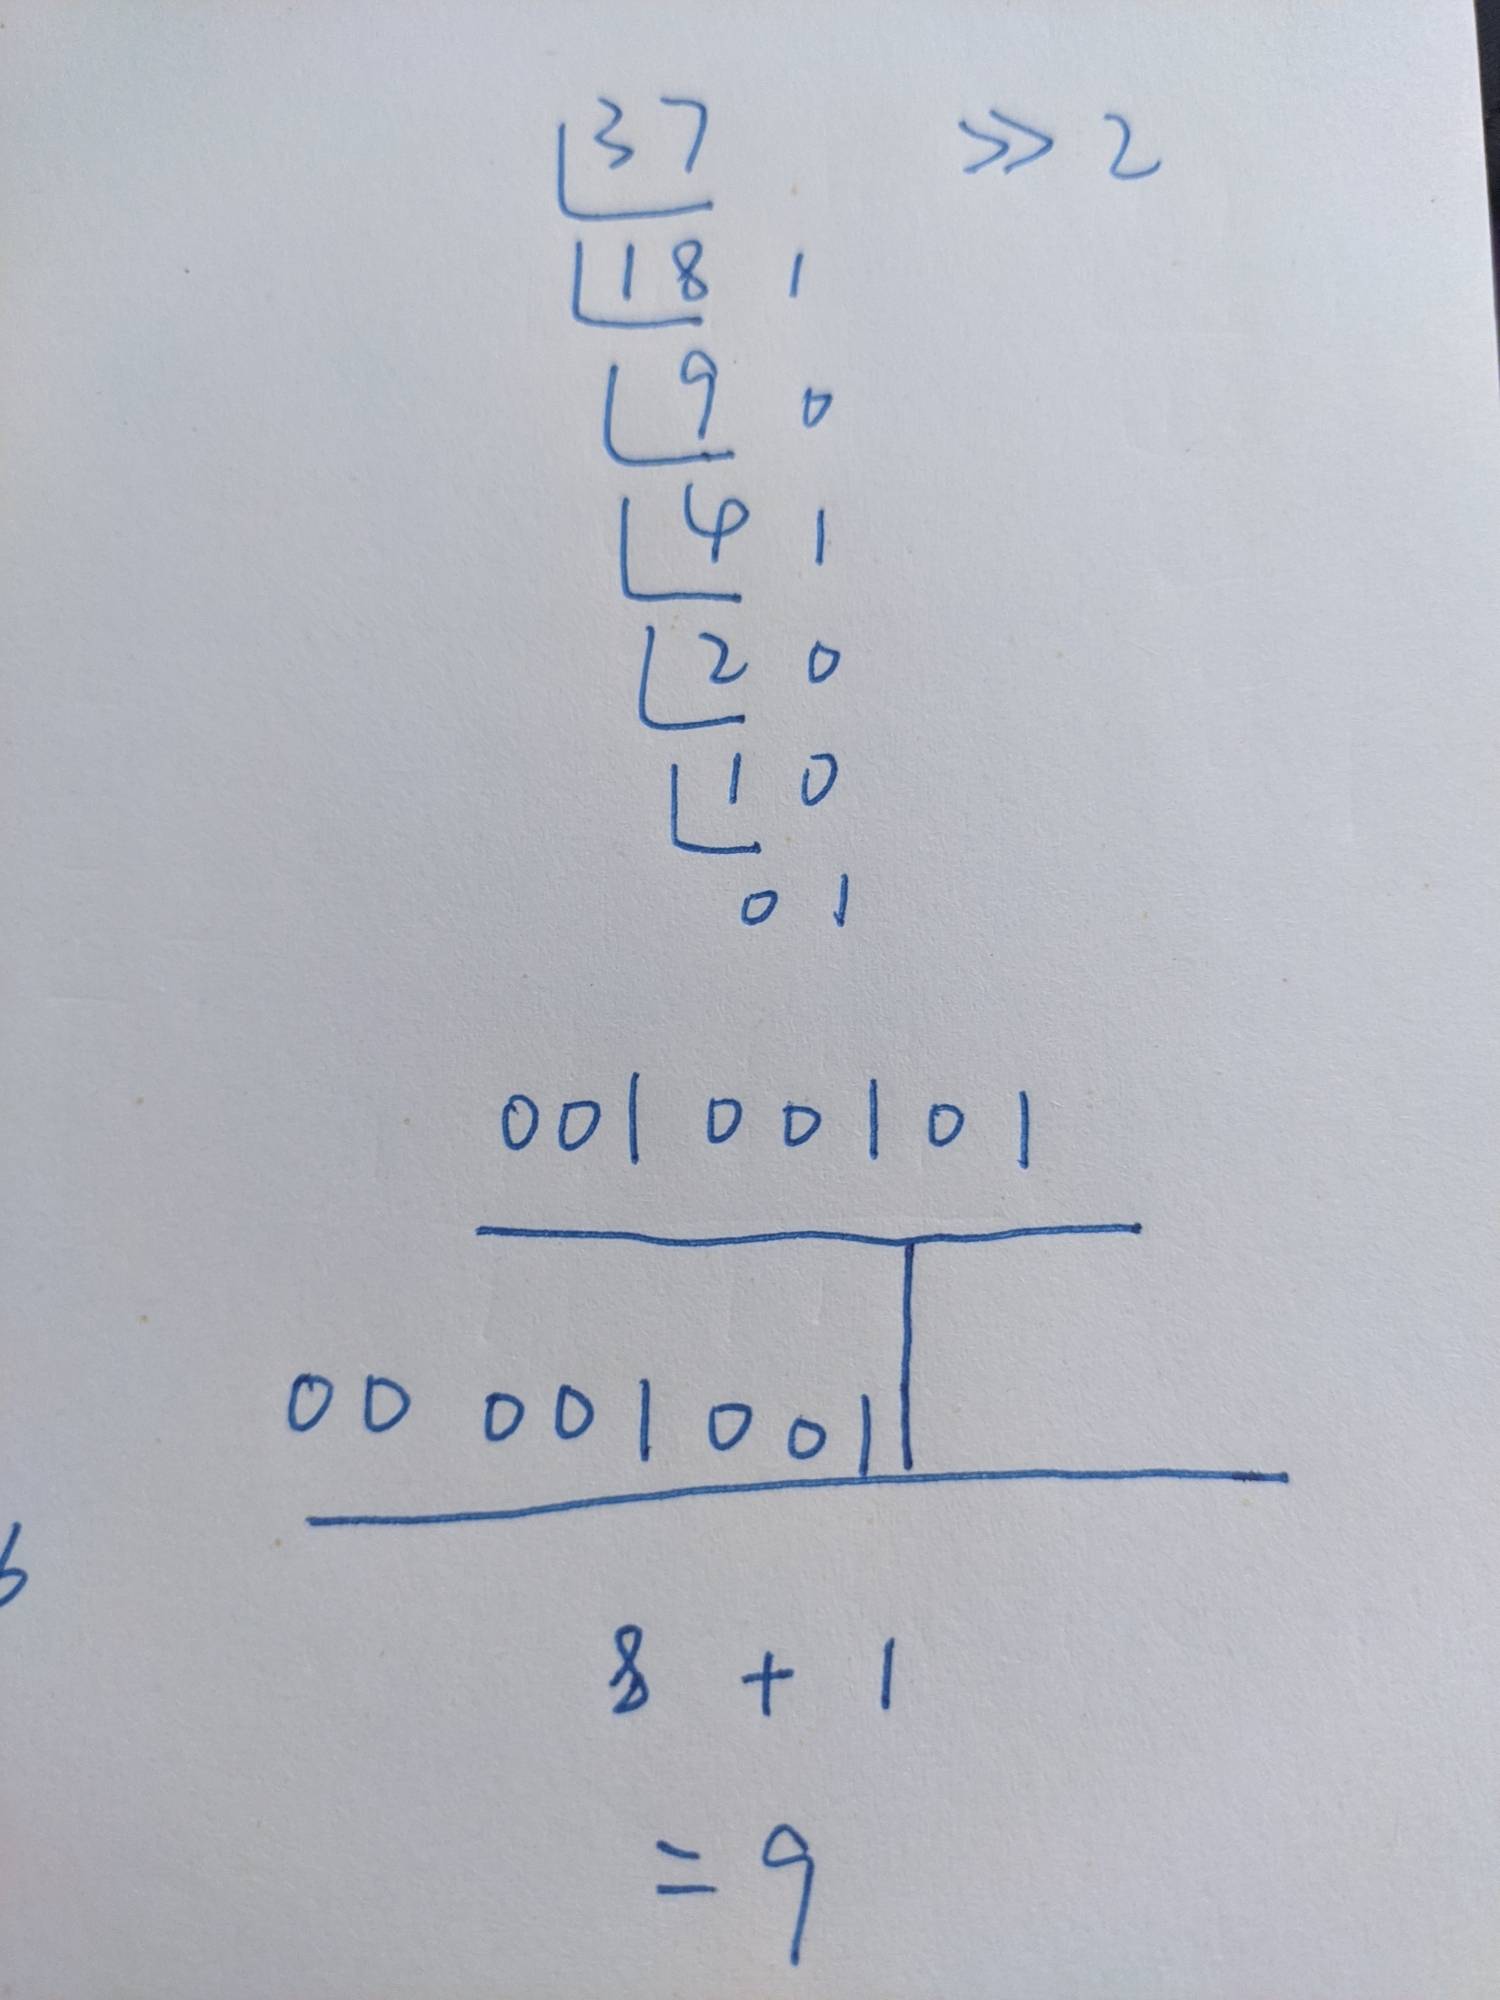 37 >> 2
18 1
9 0
4 1
2 0
1 0
0 1
00100101
00 001001
8 + 1
= 9